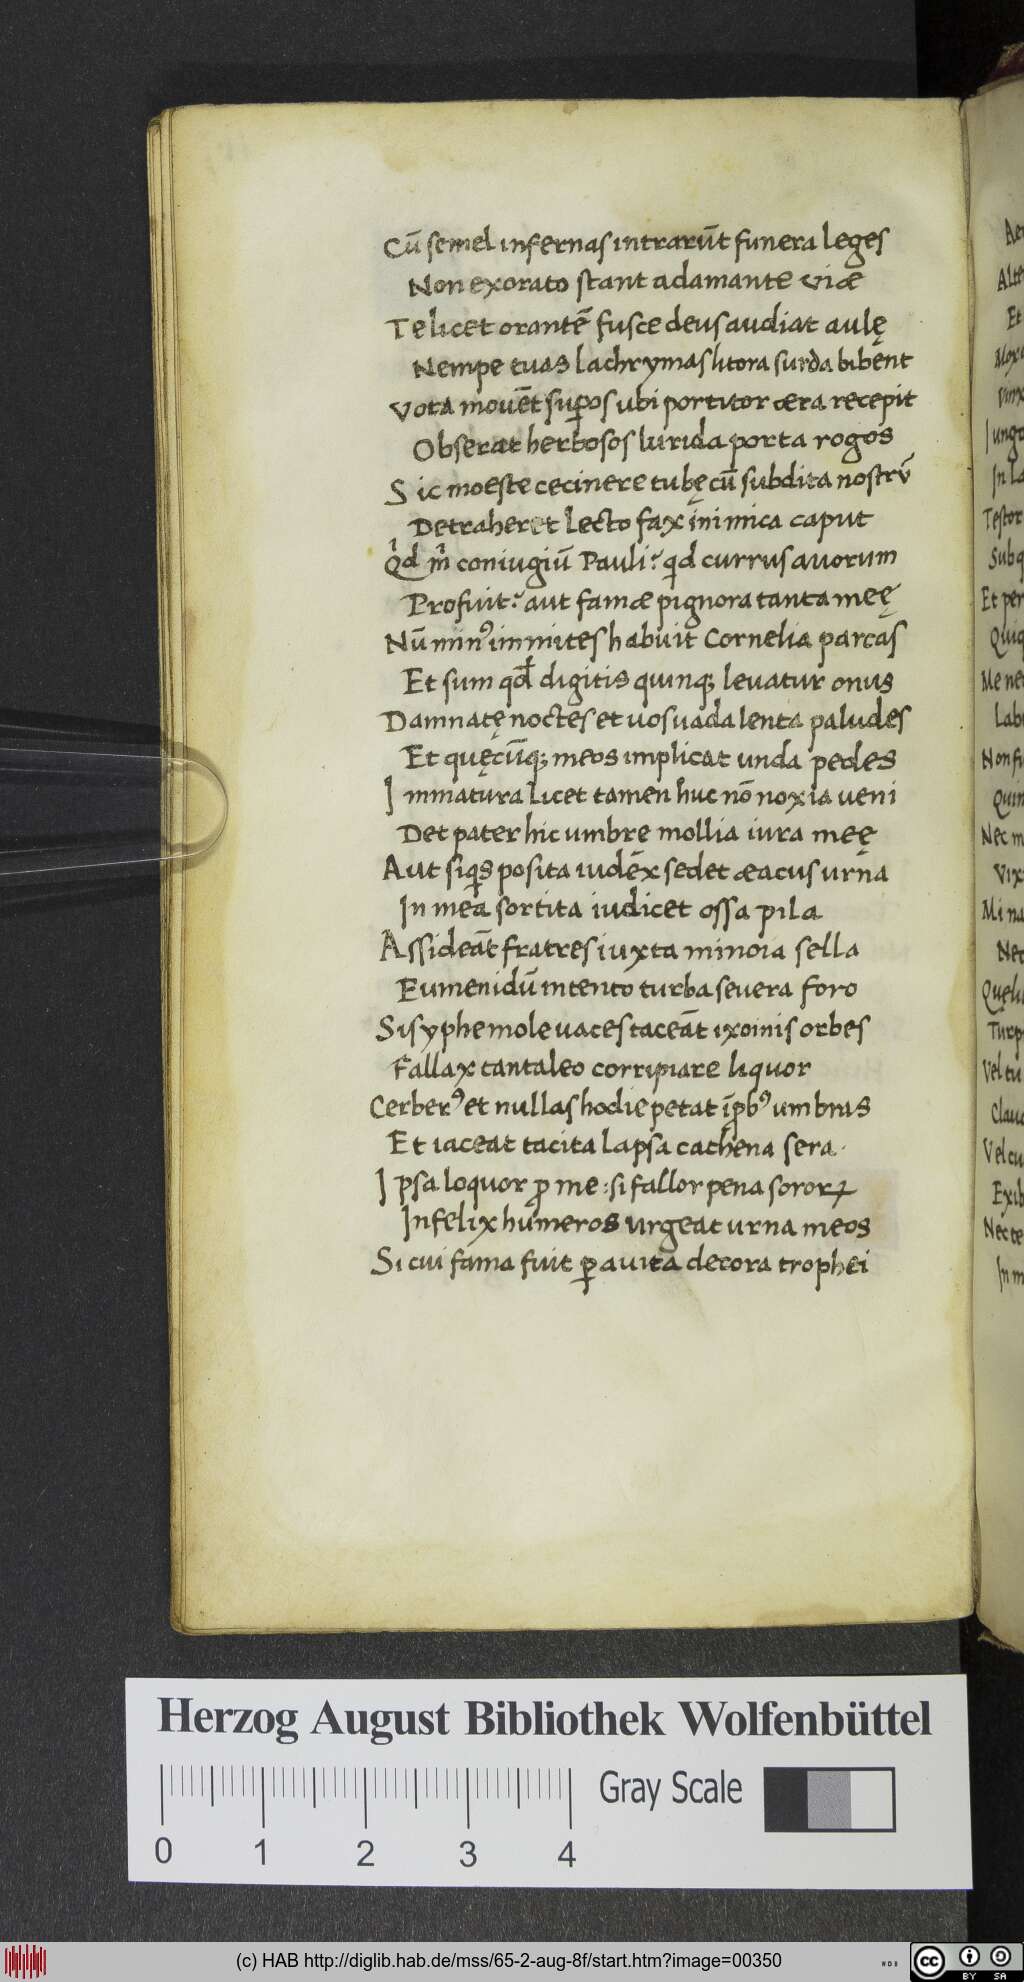 Cū semel infernas intrarūt funera leges
Non exorato stant adamante viæ
Te licet orantē fusce deus audiat aulę
Nempe tuas lachrymas litora surda bibent
Vota movēt suꝑos ubi portitor æra recepit
Obserat herbosos lurida porta rogos
Sic moeste cecinere tubę cū subdita nostrū
Detraheret lecto fax inimica caput
Qd m coniugiū Pauli? qid currus avorum
Profuit? aut famæ pignora tanta meę
Nū minꝰ immites habuit Cornelia parcas
Et sum qđ digitis quinqꝫ levatur onus
Damnatę noctes et vos vada lenta paludes
Et quęcūqꝫ meos implicat unda pedes
Immatura licet tamen huc nō noxia veni
Det pater hic umbre mollia iura meę
Aut siqis posita iudex sedet æacus urna
In mea sortita iudicet ossa pila
Assideāt fratres iuxta minoia sella
Eumenidū intento turba severa foro
Sisyphe mole vaces taceāt ixoinis orbes
Fallax tantaleo corripiare liquor
Cerberꝰ et nullas hodie petat īprbꝰ umbras
Et iaceat tacita lapsa cathena sera.
Ipsa loquor ꝓ me: si fallor pena sororꝝ
Infelix humeros urgeat urna meos
Si cui fama fuit ꝑ avita decora trophei
Aen
Alte
Et
Iungo
In La
Testor
Sub q
Et per
Me ne
Lab
Non fu
Quin
Nec m
Vix
Mi na
Nec
Turp
Vel tu
Vel cu
Exib
Nec te
In m
Herzog August Bibliothek Wolfenbüttel
0 1 2 3 4
Gray Scale
(c) HAB http://diglib.hab.de/mss/65-2-aug-8f/start.htm?image=00350
WDB
cc BY SA